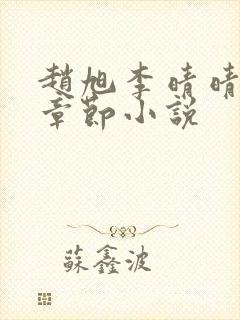 趙旭李晴晴
章節小說
蘇鑫波